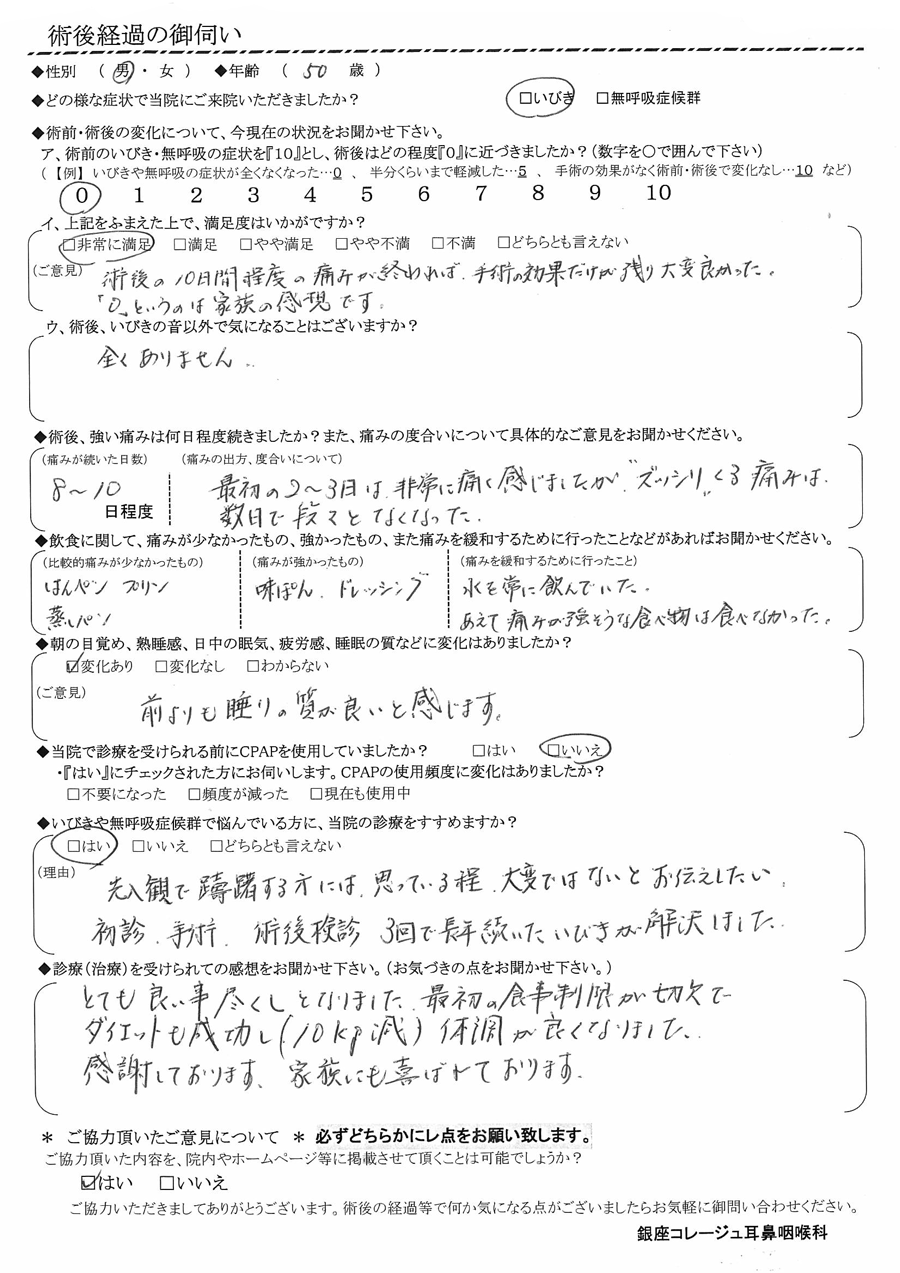 術後経過の御伺い
◆性別 ( 男 ・ 女 ) ◆年齢 ( 50 歳 )
◆どの様な症状で当院にご来院いただきましたか? □いびき □無呼吸症候群
◆術前・術後の変化について、今現在の状況をお聞かせ下さい。
ア、術前のいびき・無呼吸の症状を『10』とし、術後はどの程度『0』に近づきましたか?(数字を〇で囲んで下さい)
(【例】いびきや無呼吸の症状が全くなくなった…0 、 半分くらいまで軽減した…5 、 手術の効果がなく術前・術後で変化なし…10 など)
0 1 2 3 4 5 6 7 8 9 10
イ、上記をふまえた上で、満足度はいかがですか?
□非常に満足 □満足 □やや満足 □やや不満 □不満 □どちらとも言えない
(ご意見) 術後の10日間程度の痛みが終われば、手術の効果だけが残り大変良かった。
「0」というのは家族の感現です。
ウ、術後、いびきの音以外で気になることはございますか?
全くありません。
◆術後、強い痛みは何日程度続きましたか?また、痛みの度合いについて具体的なご意見をお聞かせください。
(痛みが続いた日数) (痛みの出方、度合いについて)
8〜10 日程度 最初の2〜3日は、非常に痛く感じましたが、"ズッシリ"くる痛みは、
数日で段々となくなった。
◆飲食に関して、痛みが少なかったもの、強かったもの、また痛みを緩和するために行ったことなどがあればお聞かせください。
(比較的痛みが少なかったもの) (痛みが強かったもの) (痛みを緩和するために行ったこと)
はんペン プリン 味ぽん、ドレッシング 水を常に飲んでいた。
蒸しパン あえて痛みが強そうな食べ物は食べなかった。
◆朝の目覚め、熟睡感、日中の眠気、疲労感、睡眠の質などに変化はありましたか?
☑変化あり □変化なし □わからない
(ご意見)
前よりも睡りの質が良いと感じます。
◆当院で診療を受けられる前にCPAPを使用していましたか? □はい □いいえ
・『はい』にチェックされた方にお伺いします。CPAPの使用頻度に変化はありましたか?
□不要になった □頻度が減った □現在も使用中
◆いびきや無呼吸症候群で悩んでいる方に、当院の診療をすすめますか?
□はい □いいえ □どちらとも言えない
(理由) 先入観で躊躇する方には、思っている程、大変ではないとお伝えしたい。
初診、手術、術後検診 3回で長年続いたいびきが解決しました。
◆診療(治療)を受けられての感想をお聞かせ下さい。(お気づきの点をお聞かせ下さい。)
とても良い事尽くしとなりました。最初の食事制限が切欠で
ダイエットも成功し(10kg減)体調が良くなりました。
感謝しております。家族にも喜ばれております。
* ご協力頂いたご意見について * 必ずどちらかにレ点をお願い致します。
ご協力頂いた内容を、院内やホームページ等に掲載させて頂くことは可能でしょうか?
☑はい □いいえ
ご協力いただきましてありがとうございます。術後の経過等で何か気になる点がございましたらお気軽に御問い合わせください。
銀座コレージュ耳鼻咽喉科